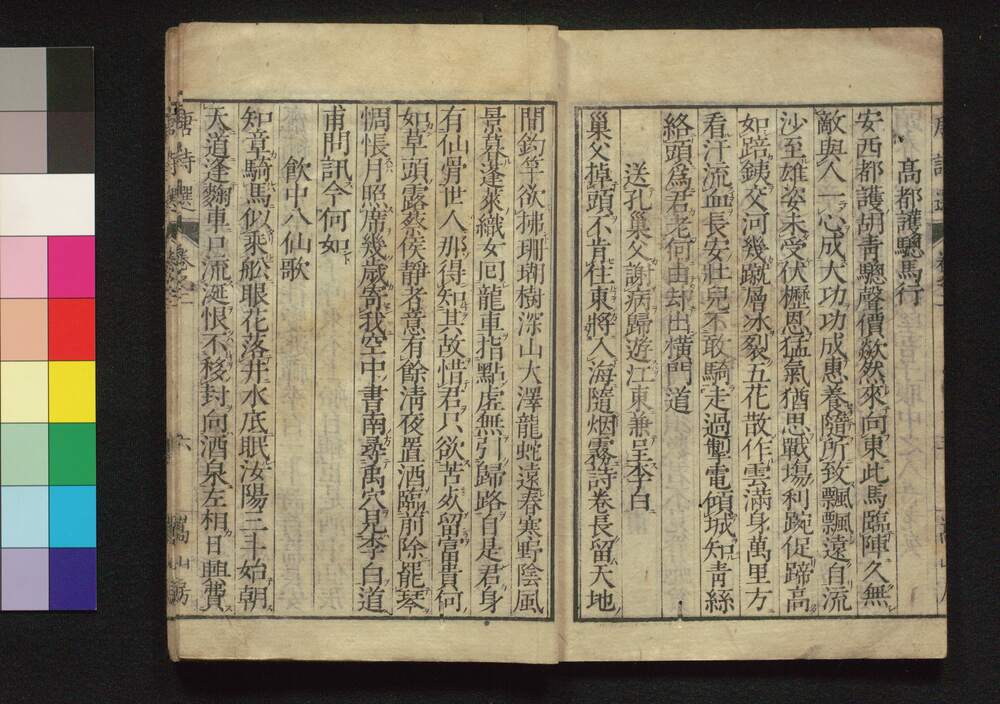 高都護驄馬行
安西都護胡青驄聲價歘然來向東此馬臨陣久無
敵與人一心成大功功成惠養隨所致飄飄遠自流
沙至雄姿未受伏櫪恩猛氣猶思戰場利踠促蹄高
如踣鐵交河幾蹴層冰裂五花散作雲滿身萬里方
看汗流血長安壯兒不敢騎走過掣電傾城知青絲
絡頭爲君老何由却出橫門道
送孔巢父謝病歸遊江東兼呈李白
巢父掉頭不肯住東將入海隨烟霧詩卷長留天地
間釣竿欲拂珊瑚樹深山大澤龍蛇遠春寒野陰風
景暮蓬萊織女囘龍車指點虛無引歸路自是君身
有仙骨世人那得知其故惜君只欲苦死留富貴何
如草頭露蔡侯靜者意有餘淸夜置酒臨前除罷琴
惆悵月照席幾歲寄我空中書南尋禹穴見李白道
甫問訊今何如
飮中八仙歌
知章騎馬似乘舩眼花落井水底眠汝陽三斗始朝
天道逢麴車口流涎恨不移封向酒泉左相日興費
唐詩選
卷之二
六
嵩山房